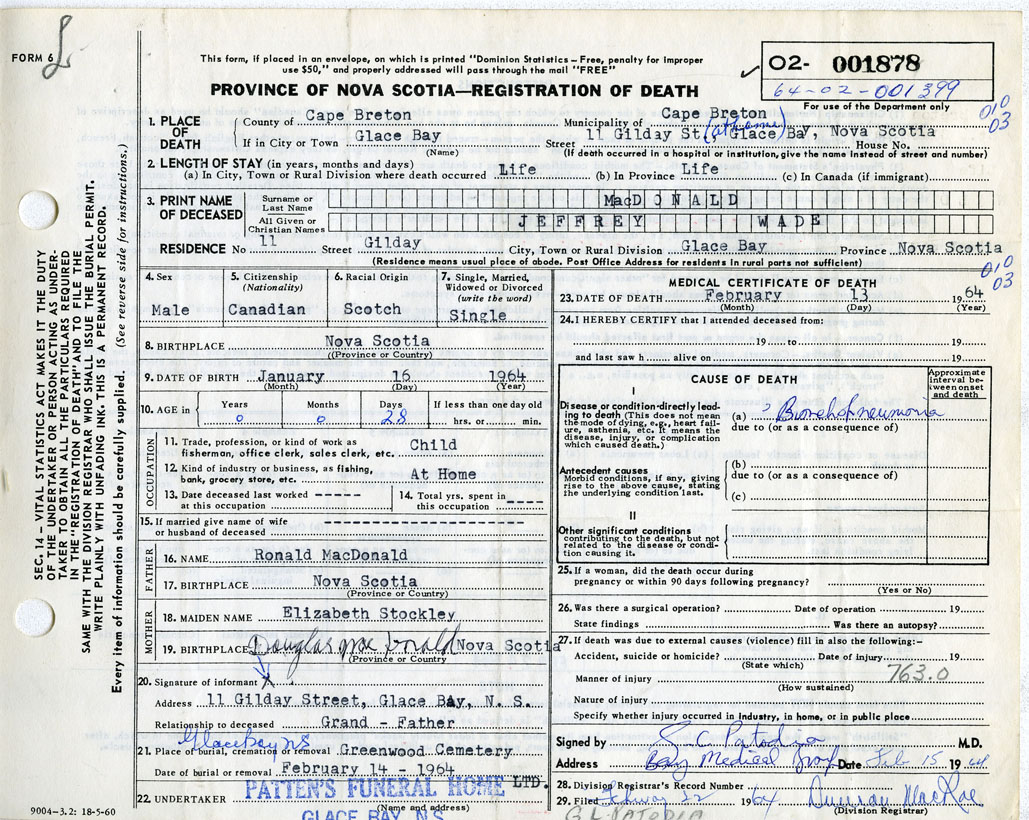 FORM 6
This form, if placed in an envelope, on which is printed "Dominion Statistics – Free, penalty for improper
use $50," and properly addressed will pass through the mail "FREE"
PROVINCE OF NOVA SCOTIA—REGISTRATION OF DEATH
02- 001878
64-02-001399
For use of the Department only
010
03
SEC. 14 – VITAL STATISTICS ACT MAKES IT THE DUTY
OF THE UNDERTAKER OR PERSON ACTING AS UNDER-
TAKER TO OBTAIN ALL THE PARTICULARS REQUIRED
IN THE "REGISTRATION OF DEATH" AND TO FILE THE
SAME WITH THE DIVISION REGISTRAR WHO SHALL ISSUE THE BURIAL PERMIT.
WRITE PLAINLY WITH UNFADING INK. THIS IS A PERMANENT RECORD.
Every item of information should be carefully supplied. (See reverse side for instructions.)
1. PLACE OF DEATH County of Cape Breton Municipality of Cape Breton
If in City or Town Glace Bay Street 11 Gilday St., (at home) Glace Bay, Nova Scotia House No.
(Name) (If death occurred in a hospital or institution, give the name instead of street and number)
2. LENGTH OF STAY (in years, months and days)
(a) In City, Town or Rural Division where death occurred Life (b) In Province Life (c) In Canada (if immigrant)
3. PRINT NAME OF DECEASED Surname or Last Name MacDONALD
All Given or Christian Names JEFFREY WADE
RESIDENCE No 11 Street Gilday City, Town or Rural Division Glace Bay Province Nova Scotia
(Residence means usual place of abode. Post Office Address for residents in rural parts not sufficient)
4. Sex Male
5. Citizenship (Nationality) Canadian
6. Racial Origin Scotch
7. Single, Married, Widowed or Divorced (write the word) Single
8. BIRTHPLACE Nova Scotia
((Province or Country)
9. DATE OF BIRTH January 16 1964
(Month) (Day) (Year)
10. AGE in Years 0 Months 0 Days 28 If less than one day old hrs. or min.
OCCUPATION
11. Trade, profession, or kind of work as
fisherman, office clerk, sales clerk, etc. Child
12. Kind of industry or business, as fishing,
bank, grocery store, etc. At Home
13. Date deceased last worked -----
at this occupation
14. Total yrs. spent in
this occupation -----
15. If married give name of wife
or husband of deceased
FATHER
16. NAME Ronald MacDonald
17. BIRTHPLACE Nova Scotia
(Province or Country)
MOTHER
18. MAIDEN NAME Elizabeth Stockley
19. BIRTHPLACE Nova Scotia
(Province or Country
Douglas MacDonald
20. Signature of informant X
Address 11 Gilday Street, Glace Bay, N. S.
Relationship to deceased Grand - Father
Glace Bay NS
21. Place of burial, cremation or removal Greenwood Cemetery
Date of burial or removal February 14 - 1964
22. UNDERTAKER PATTEN'S FUNERAL HOME LTD.
(Name and address)
GLACE BAY, N.S.
9004-3.2: 18-5-60
MEDICAL CERTIFICATE OF DEATH
010
03
23. DATE OF DEATH February 13 1964
(Month) (Day) (Year)
24. I HEREBY CERTIFY that I attended deceased from:
19 to 19
and last saw h alive on 19
CAUSE OF DEATH
Approximate interval between onset and death
I
Disease or condition directly lead-
ing to death (This does not mean
the mode of dying, e.g., heart fail-
ure, asthenia, etc. It means the
disease, injury, or complication
which caused death.)
(a) Bronchopneumonia
due to (or as a consequence of)
Antecedent causes
Morbid conditions, if any, giving
rise to the above cause, stating
the underlying condition last.
(b)
due to (or as a consequence of)
(c)
II
Other significant conditions
contributing to the death, but not
related to the disease or condi-
tion causing it.
25. If a woman, did the death occur during
pregnancy or within 90 days following pregnancy?
(Yes or No)
26. Was there a surgical operation? Date of operation 19
State findings Was there an autopsy?
27. If death was due to external causes (violence) fill in also the following:–
Accident, suicide or homicide? Date of injury 19
(State which)
763.0
Manner of injury
(How sustained)
Nature of injury
Specify whether injury occurred in Industry, in home, or in public place
Signed by M.D.
Address Bay Medical Date Feb 15 1964
28. Division Registrar's Record Number
29. Filed 22 1964 Duncan MacRae
(Division Registrar)